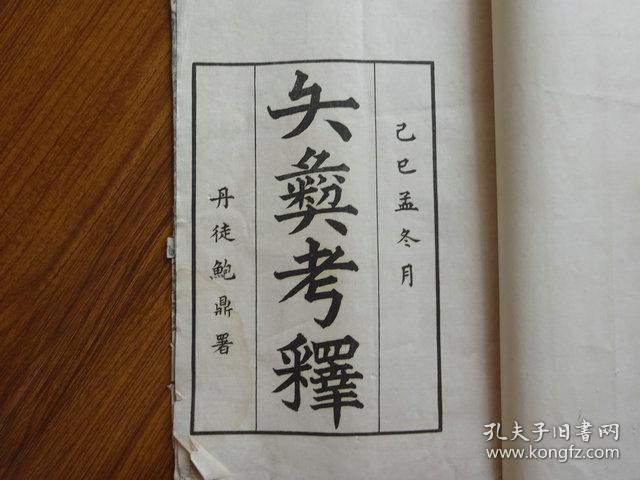 己巳孟冬月
矢彝考釋
丹徒鮑鼎署
孔夫子旧书网